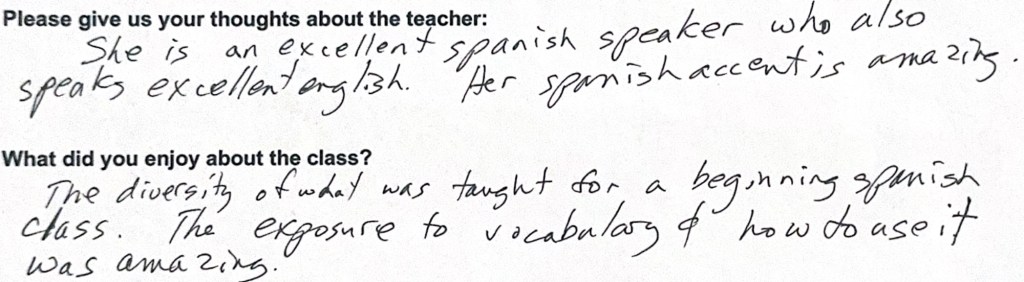 Please give us your thoughts about the teacher:
She is an excellent spanish speaker who also
speaks excellent english. Her spanish accent is amazing.
What did you enjoy about the class?
The diversity of what was taught for a beginning spanish
class. The exposure to vocabulary & how to use it
was amazing.